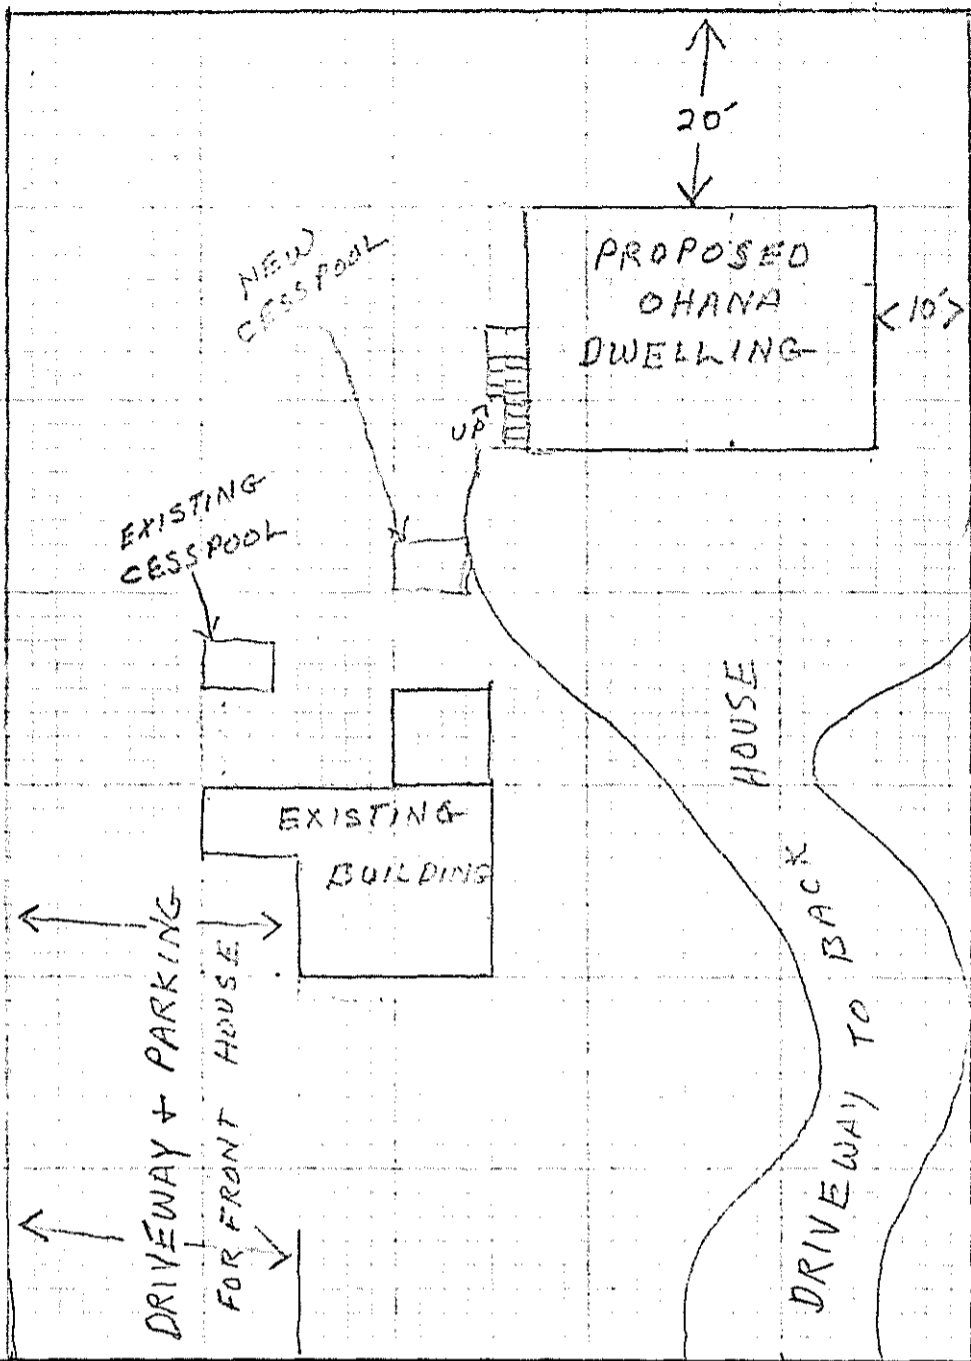 20'
PROPOSED
OHANA
DWELLING
<10'>
NEW
CESSPOOL
UP
EXISTING
CESSPOOL
EXISTING
BUILDING
DRIVEWAY + PARKING
FOR FRONT HOUSE
DRIVEWAY TO BACK HOUSE